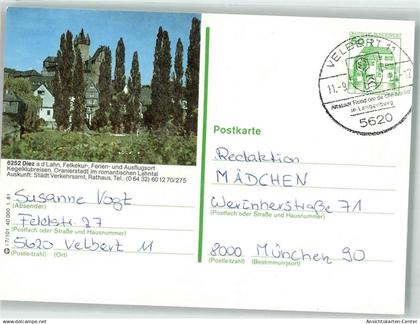 VELBERT 11
11.-9.
Altstadt Rund um die
in Langenberg
5620
6252 Diez a d Lahn, Felkekur-, Ferien- und Ausflugsort
Kegelklubreisen, Oranierstadt im romantischen Lahntal
Auskunft: Städt Verkehrsamt, Rathaus, Tel.: (0 64 32) 601270/275
Susanne Vogt
(Absender)
Feldstr. 27
(Postfach oder Straße und Hausnummer)
5620 Velbert 11
(Postleitzahl) (Ort)
17/101 40 000 1. 81
Postkarte
Redaktion
MÄDCHEN
Werinherstraße 71
(Postfach oder Straße und Hausnummer)
8000 München 90
(Postleitzahl) (Bestimmungsort)
https://www.ansichtskarten-center.de/
Ansichtskarten-Center